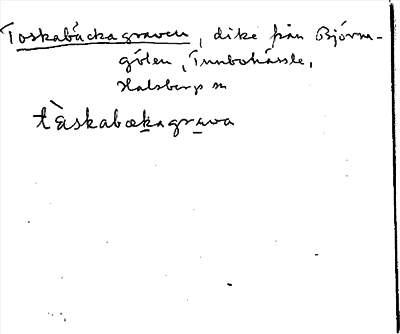 Toskabäckagraven, dike från Björm-
gölen, Tunbohässle,
Halsberg sn
tàskabækagrava